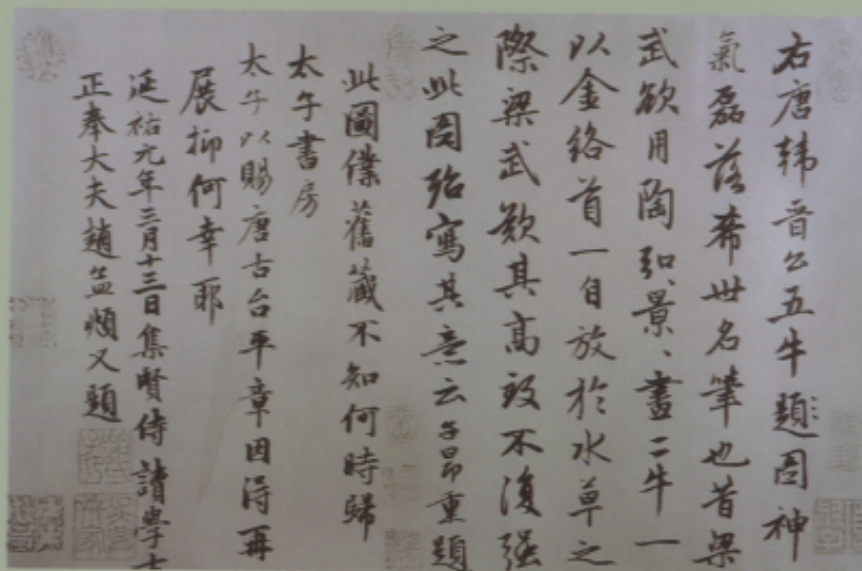 右唐韩晋公五牛題图神
氣磊落希世名筆也昔梁
武欲用陶弘景、畫二牛一
以金络首一自放於水草之
際梁武歎其高致不復强
之此图殆寫其意云子昂重題
此圖僕舊藏不知何時歸
太子書房
太子以賜唐古台平章因得再
展抑何幸耶
延祐元年三月十三日集賢侍讀學士
正奉大夫趙孟頫又題